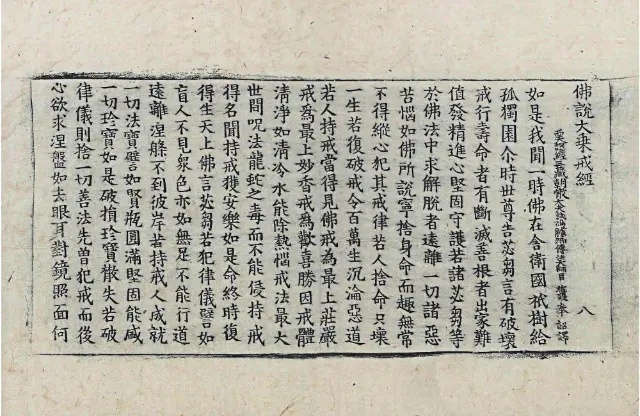 佛說大乘戒經 八
西天譯經三藏朝散大夫試鴻臚少卿傳法大師臣施護奉 詔譯
如是我聞一時佛在舍衛國祇樹給
孤獨園尒時世尊告苾芻言有破壞
戒行壽命者有斷滅善根者出家難
值發精進心堅固守護若諸苾芻等
於佛法中求解脫者遠離一切諸惡
苦惱如佛所說寧捨身命而趣無常
不得縱心犯其戒律若人捨命只壞
一生若復破戒令百萬生沉淪惡道
若人持戒當得見佛戒為最上莊嚴
戒為最上妙香戒為歡喜勝因戒體
清淨如清冷水能除熱惱戒法最大
世間呪法龍虵之毒而不能侵持戒
得名聞持戒獲安樂如是命終時復
得生天上佛言苾芻若犯律儀譬如
盲人不見眾色亦如無足不能行道
遠離涅槃不到彼岸若持戒人成就
一切法寶譬如賢瓶圓滿堅固能盛
一切珎寶如是破損珎寶散失若破
律儀則捨一切善法先曾犯戒而後
心欲求涅盤如去眼耳對鏡照面何